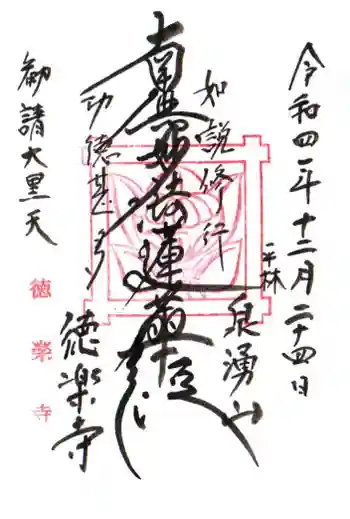 令和四年十二月二十四日
平林
泉湧山
如説修行
南無妙法蓮華経
功徳甚多
徳榮寺
勧請大黒天
徳榮寺